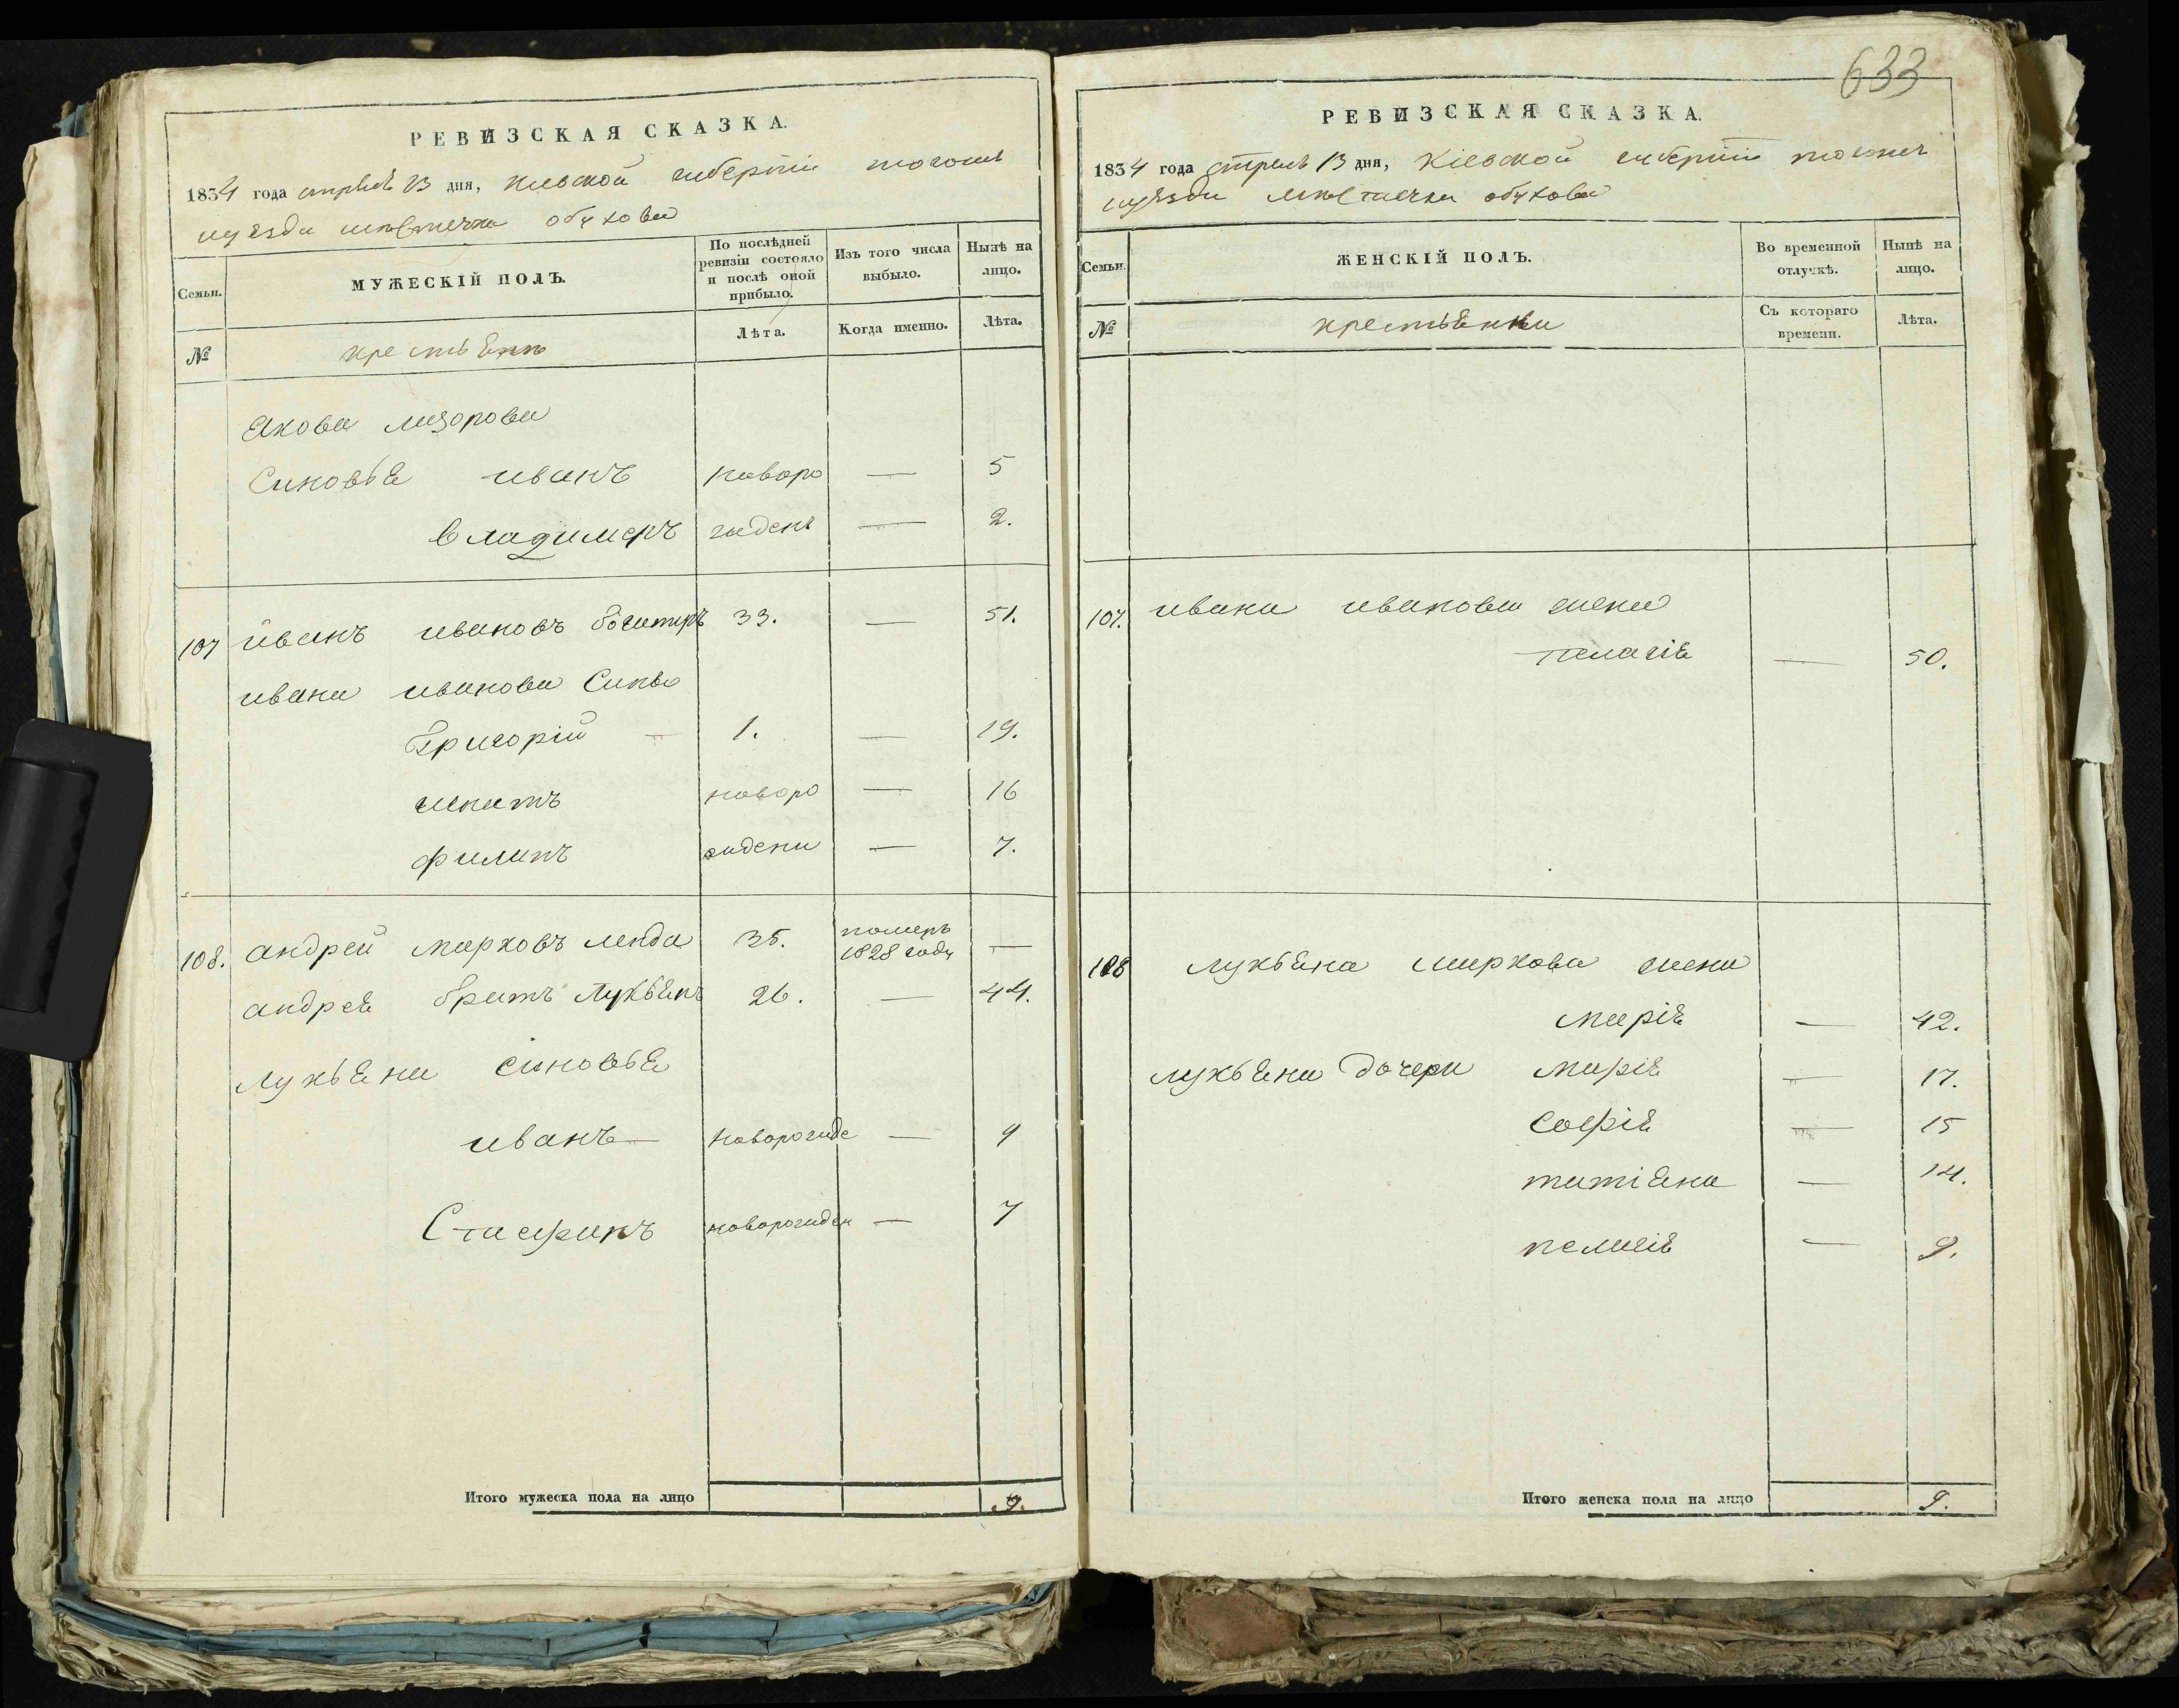 РЕВИЗСКАЯ СКАЗКА.
1834 года апреля 13 дня, киевской губернии тогожъ
уезда местечка обухова
Семьи.
МУЖЕСКІЙ ПОЛЪ.
По послѣдней ревизіи состояло и послѣ оной прибыло.
Изъ того числа выбыло.
Нынѣ на лицо.
№
крестьяне
Лѣта.
Когда именно.
Лѣта.
Якова
Синовья иванъ наворо — 5
владимеръ жденъ — 2.
107 иванъ ивановъ богатиръ 33. — 51.
ивана иванова Сины
Григорій — 1. — 19.
игнатъ наворо — 16
филипъ ждени — 7.
108. андрей марковъ ленда 35. померъ 1828 году —
андрея братъ Лукьянъ 26. — 44.
Лукьяна синовья
иванъ — наворожде — 9
Стафанъ наворожден — 7
Итого мужеска пола на лицо 9.
633
РЕВИЗСКАЯ СКАЗКА.
1834 года апреля 13 дня, Кіевской губерніи тогожъ
уѣзда местечка обухова
Семьи.
ЖЕНСКІЙ ПОЛЪ.
Во временной отлучкѣ.
Нынѣ на лицо.
№
крестьянки
Съ котораго времени.
Лѣта.
107. ивана иванова жена
пелагія — 50.
108 лукьяна маркова жена
марія — 42.
лукьяна дочери марія — 17.
софія — 15
татіяна — 14.
пелагія — 9.
Итого женска пола на лицо 9.